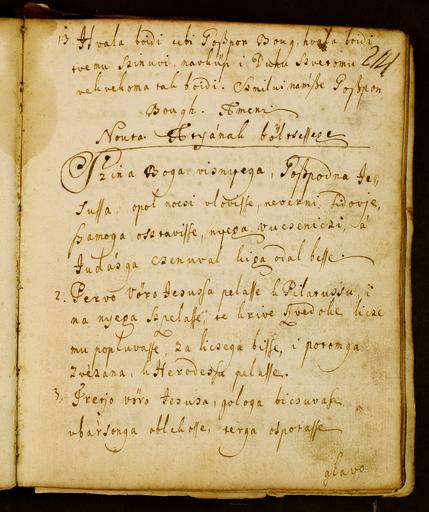 13 Hvala boidi tebi Goszpon Boug, hvala boidi
214
tvemu Szinuvi, navküp i Duhu Szvetomu
vekvekoma tak boidi. Szmilui nanisse Goszpon
Bough. Ameni
Nouta. Atyanak böltsessege
Szina Boga visnyega, Goszpodna Je-
sussa, opol nocsi vlovisse, neverni Sidovje,
szamoga osztavisse, nyega vucseniczi, za
Judásga czenuval kiga odal besse.
2. Pervo vöro Jesussa pelasse k Pilatussu, i
na nyega szpelasse, te krive szvedoke, licze
mu popluvasse, za licsega bisse, i potomga
zvézana, k Herodessu pelasse.
3. Tretjo vöro Jesusa, gologa bicsuvasse
vbarsonga oblekosse, terga ospotasse
glavo